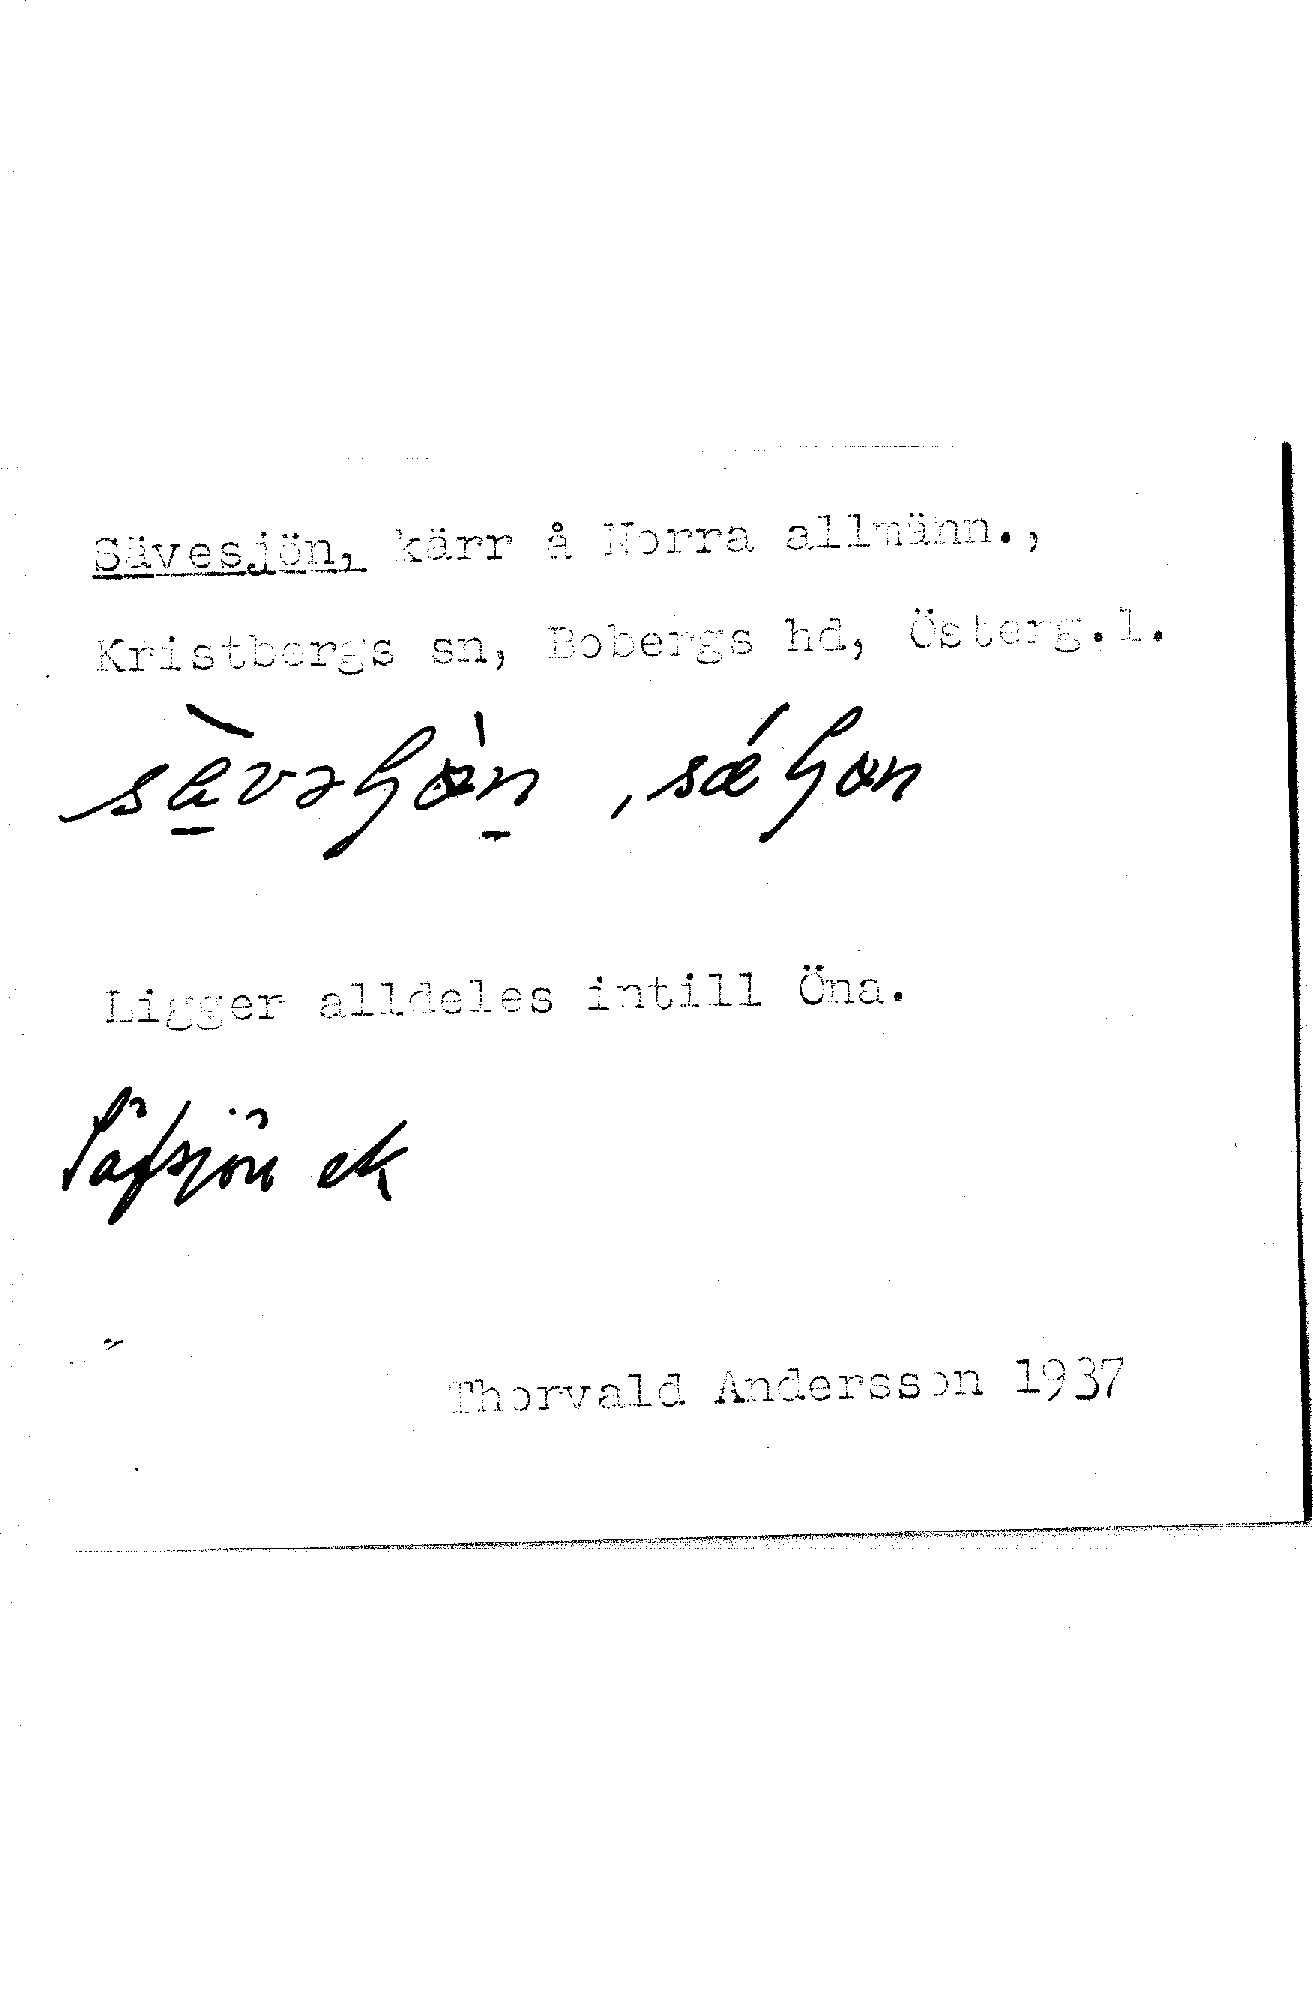 Sävesjön, kärr å Norra allmänn.,
Kristbergs sn, Bobergs hd, Österg.l.
Ligger alldeles intill Öna.
Säfsjön ek
Thorvald Andersson 1937